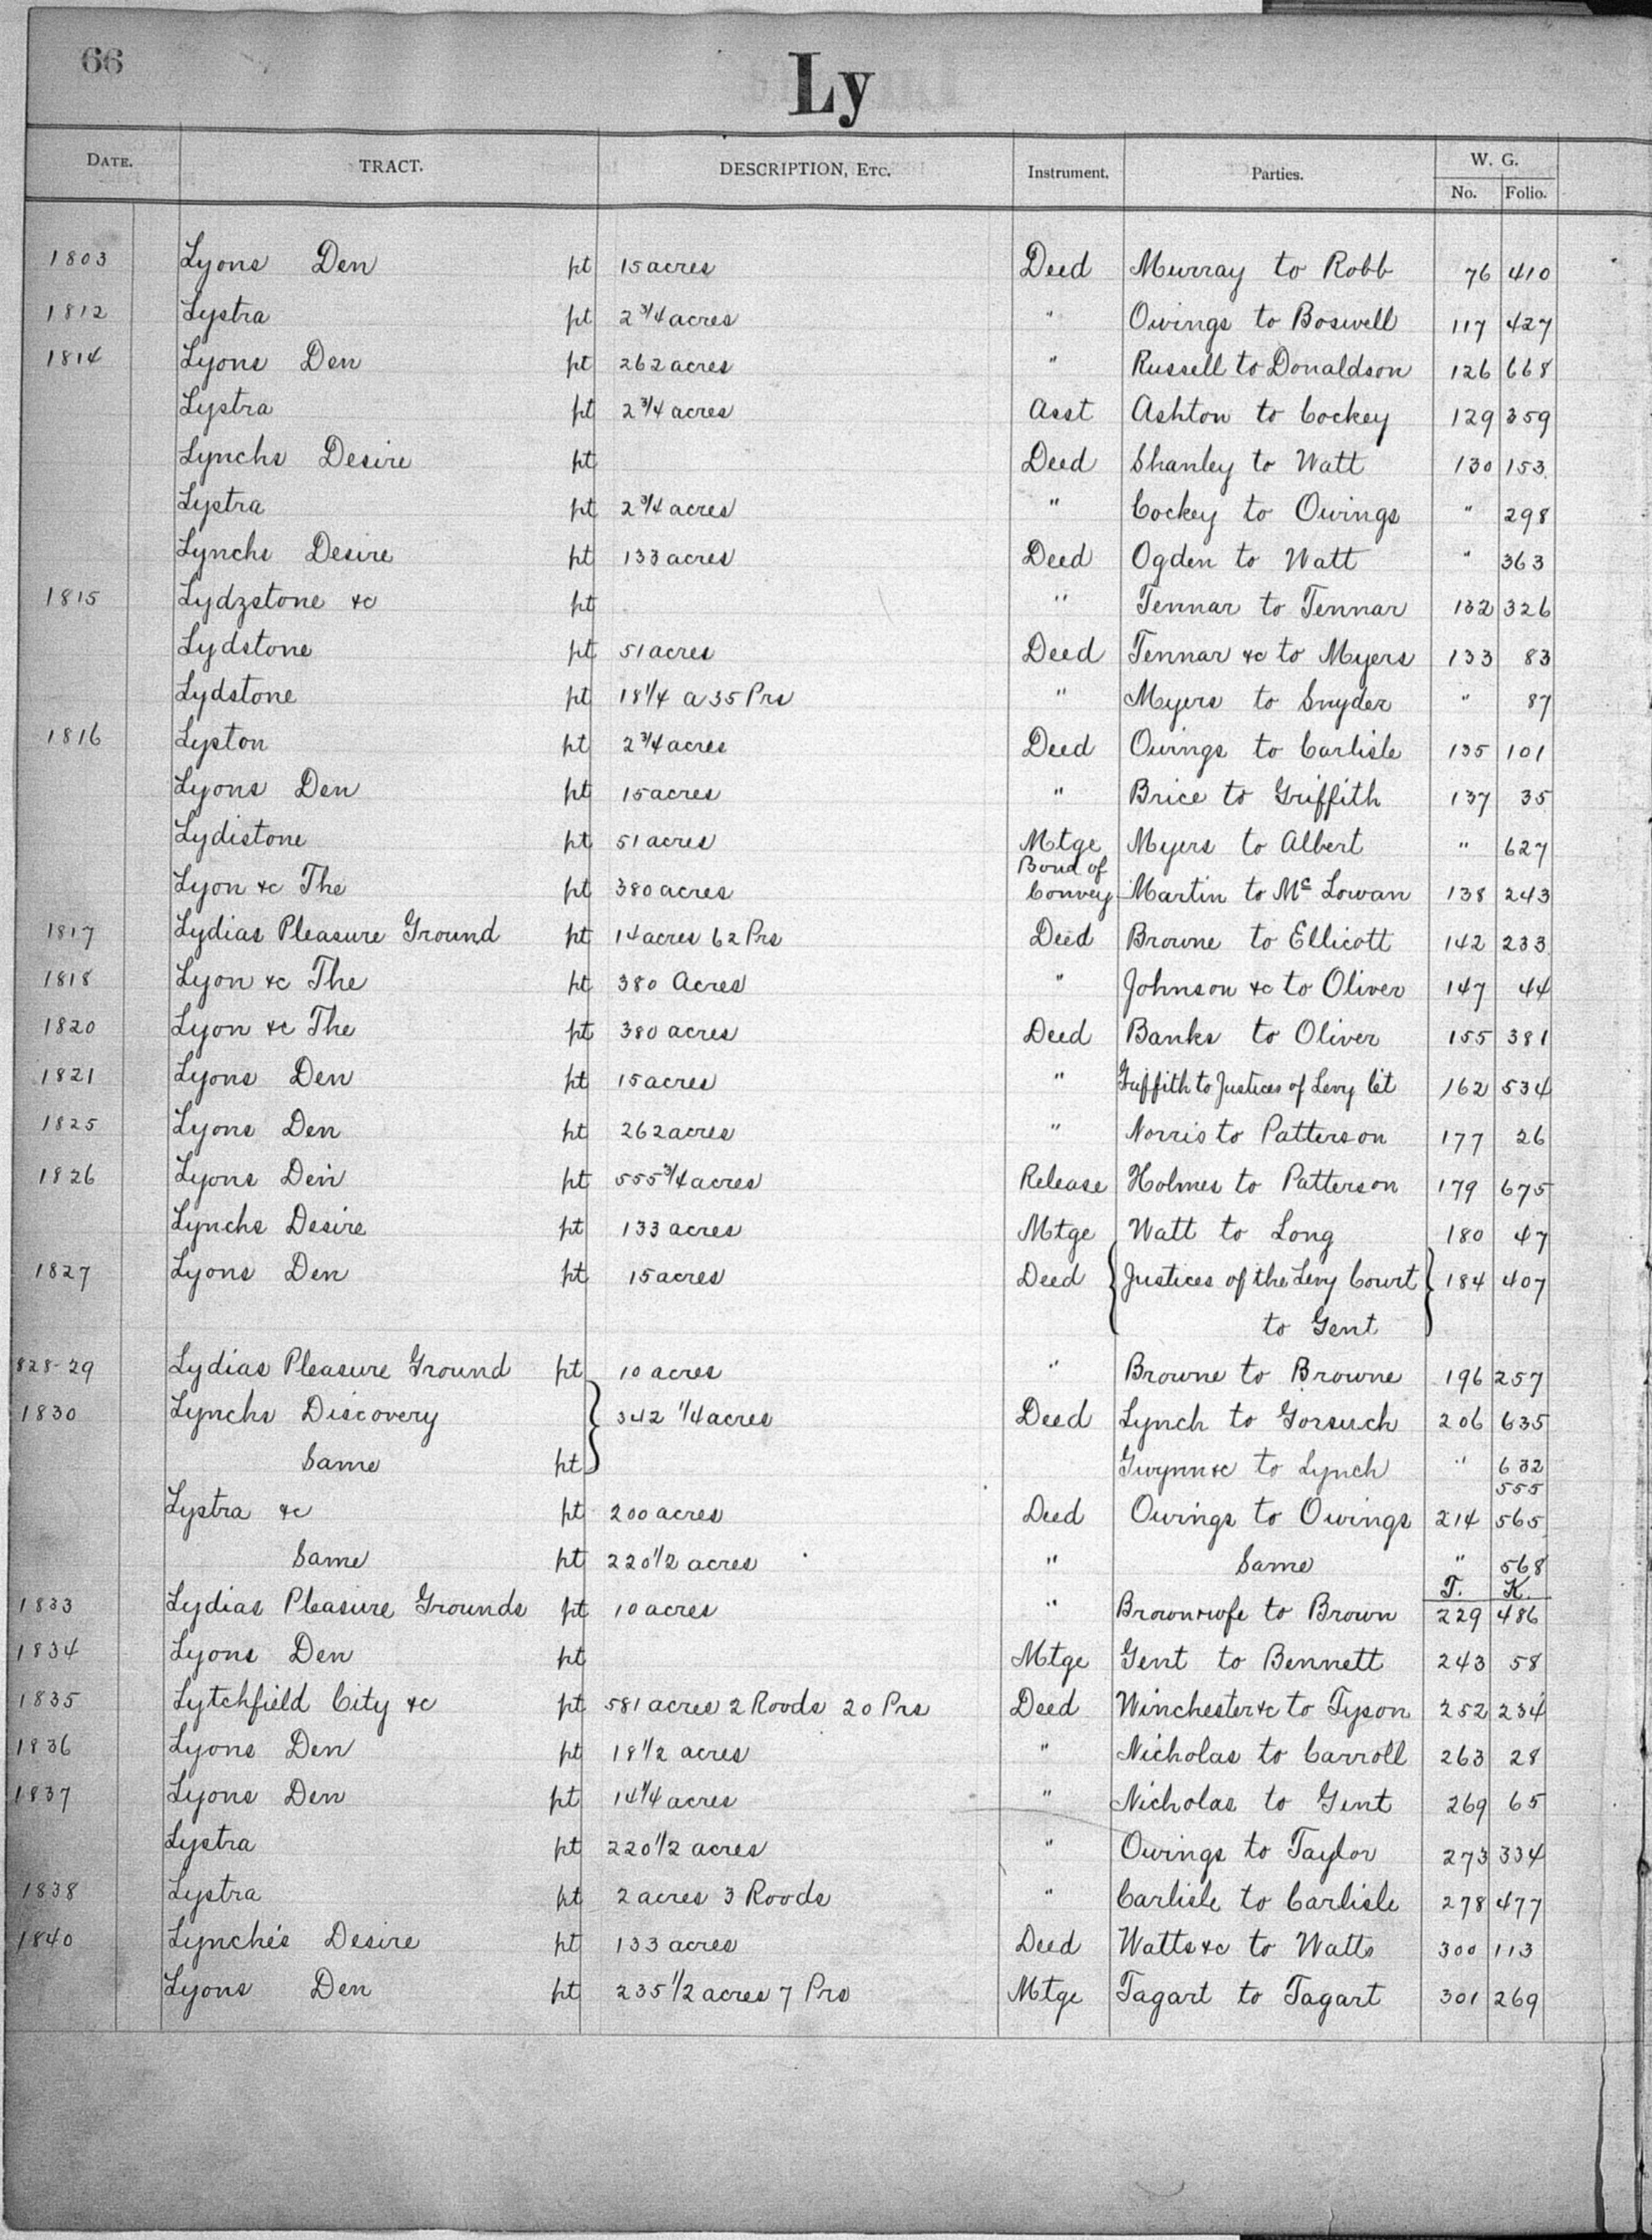 66
Ly
DATE. TRACT. DESCRIPTION, ETC. Instrument. Parties. W. G.
No. Folio.
1803 Lyons Den pt 15 acres Deed Murray to Robb 76 410
1812 Lystra pt 2 3/4 acres " Owings to Boswell 117 427
1814 Lyons Den pt 262 acres " Russell to Donaldson 126 668
Lystra pt 2 3/4 acres Asst Ashton to Cockey 129 359
Lynchs Desire pt Deed Shanley to Watt 130 153
Lystra pt 2 3/4 acres " Cockey to Owings " 298
Lynchs Desire pt 133 acres Deed Ogden to Watt " 363
1815 Lydzstone &c pt " Tennar to Tennar 132 326
Lydstone pt 51 acres Deed Tennar &c to Myers 133 83
Lydstone pt 18 1/4 a 35 Prs " Myers to Snyder " 87
1816 Lyston pt 2 3/4 acres Deed Owings to Carlisle 135 101
Lyons Den pt 15 acres " Brice to Griffith 137 35
Lydistone pt 51 acres Mtge Myers to Albert " 627
Bond of
Lyon &c The pt 380 acres Convey Martin to Mc Lowan 138 243
1817 Lydias Pleasure Ground pt 14 acres 62 Prs Deed Browne to Ellicott 142 233
1818 Lyon &c The pt 380 Acres " Johnson &c to Oliver 147 44
1820 Lyon &c The pt 380 acres Deed Banks to Oliver 155 381
1821 Lyons Den pt 15 acres " Griffith to Justices of Levy Ct 162 534
1825 Lyons Den pt 262 acres " Norris to Patterson 177 26
1826 Lyons Den pt 555 3/4 acres Release Holmes to Patterson 179 675
Lynchs Desire pt 133 acres Mtge Watt to Long 180 47
1827 Lyons Den pt 15 acres Deed Justices of the Levy Court 184 407
to Gent
828-29 Lydias Pleasure Ground pt 10 acres " Browne to Browne 196 257
1830 Lynchs Discovery 342 1/4 acres Deed Lynch to Gorsuch 206 635
Same pt Gwynn &c to Lynch " 632
555
Lystra &c pt 200 acres Deed Owings to Owings 214 565
Same pt 220 1/2 acres " Same " 568
T. K.
1833 Lydias Pleasure Grounds pt 10 acres " Brown & wife to Brown 229 486
1834 Lyons Den pt Mtge Gent to Bennett 243 58
1835 Lytchfield City &c pt 581 acres 2 Roods 20 Prs Deed Winchester &c to Tyson 252 234
1836 Lyons Den pt 18 1/2 acres " Nicholas to Carroll 263 28
1837 Lyons Den pt 14 1/4 acres " Nicholas to Gent 269 65
Lystra pt 220 1/2 acres " Owings to Taylor 273 334
1838 Lystra pt 2 acres 3 Roods " Carlisle to Carlisle 278 477
1840 Lynche's Desire pt 133 acres Deed Watts &c to Watts 300 113
Lyons Den pt 235 1/2 acres 7 Prs Mtge Tagart to Tagart 301 269